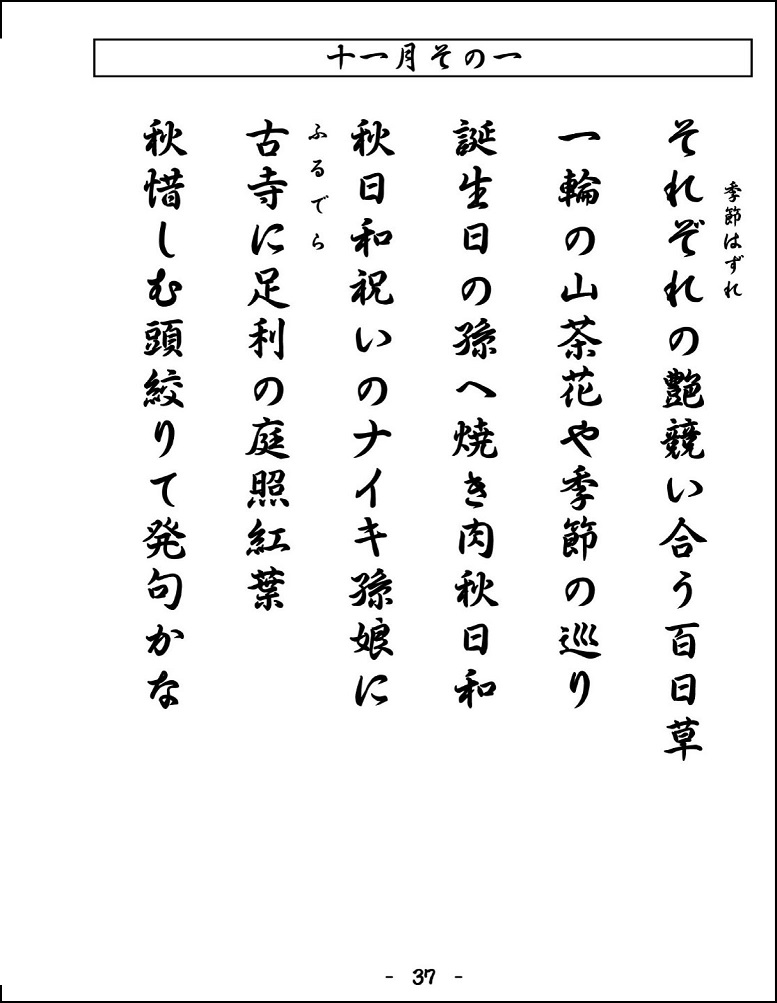 十一月その一
季節はずれ
それぞれの艶競い合う百日草
一輪の山茶花や季節の巡り
誕生日の孫へ焼き肉秋日和
秋日和祝いのナイキ孫娘に
ふるでら
古寺に足利の庭照紅葉
秋惜しむ頭絞りて発句かな
- 37 -